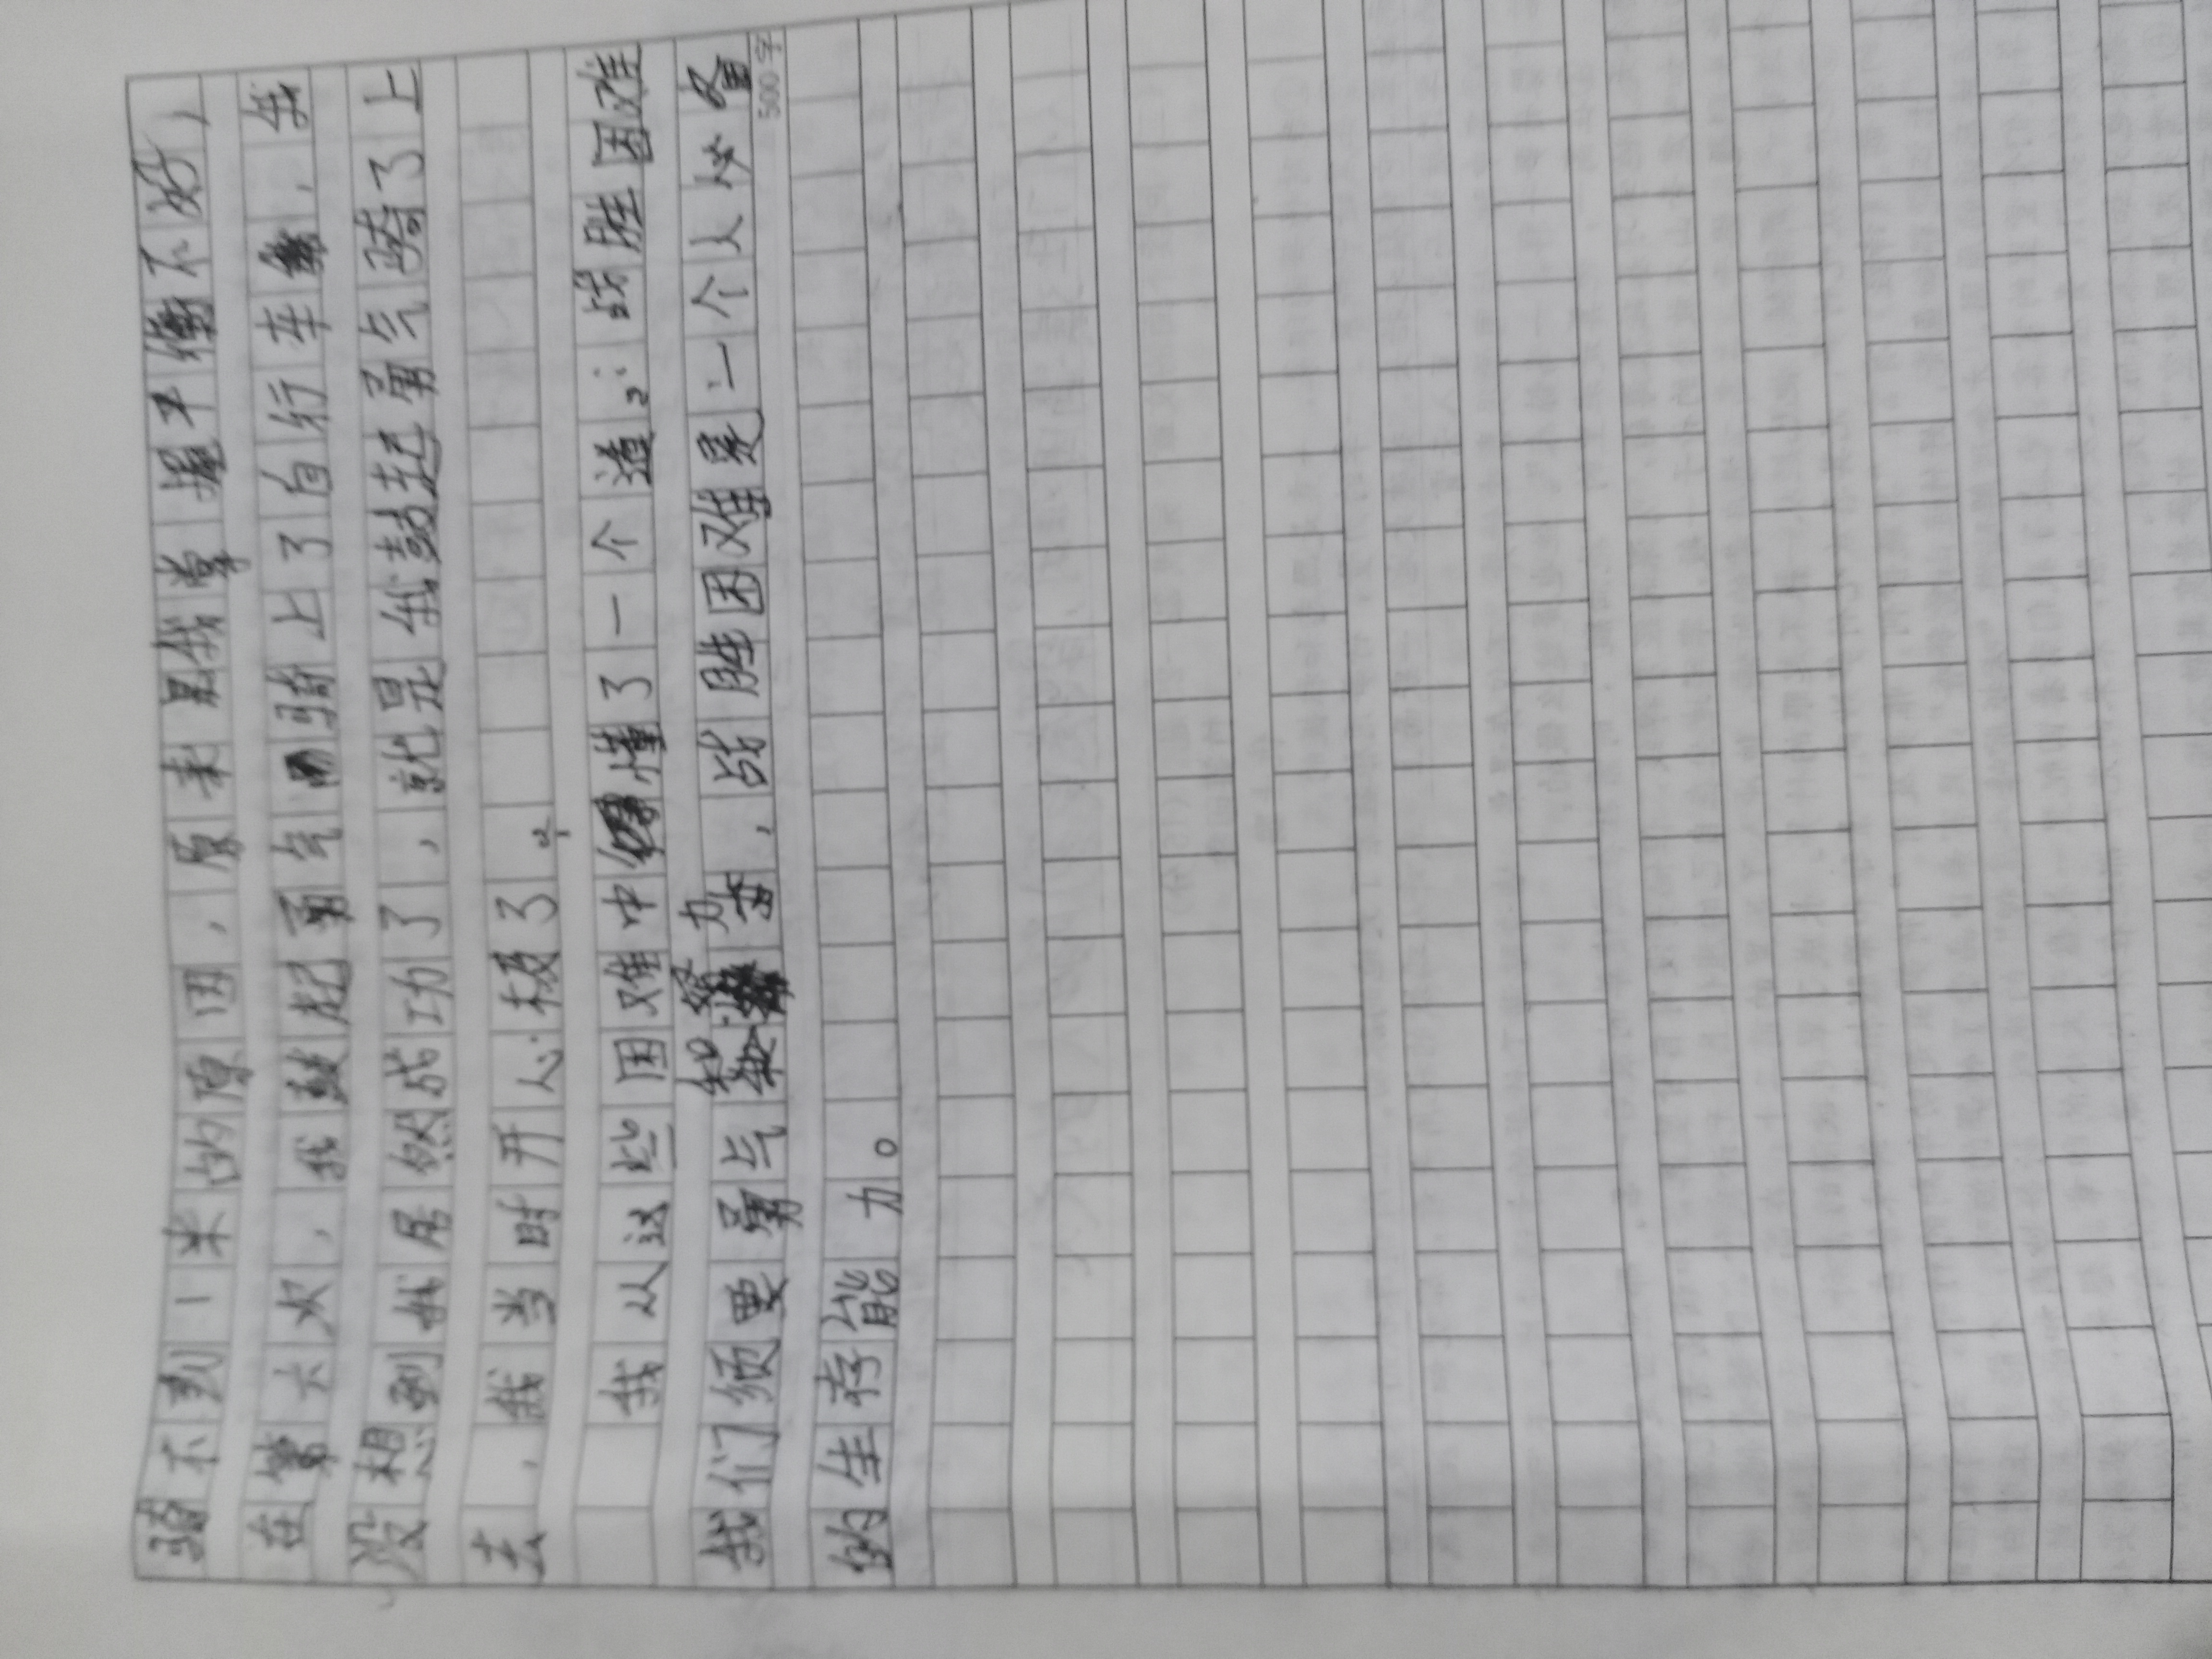 骑不到一米的原因，原来是我掌握平衡不好，
在第六次，我鼓起勇气骑上了自行车，我
没想到我居然成功了，就是我鼓起勇气骑了上
去，我当时开心极了。
我从这些困难中懂了一个道。：战胜困难
我们须要勇气和努力，战胜困难是一个人必备
500字
的生存能力。